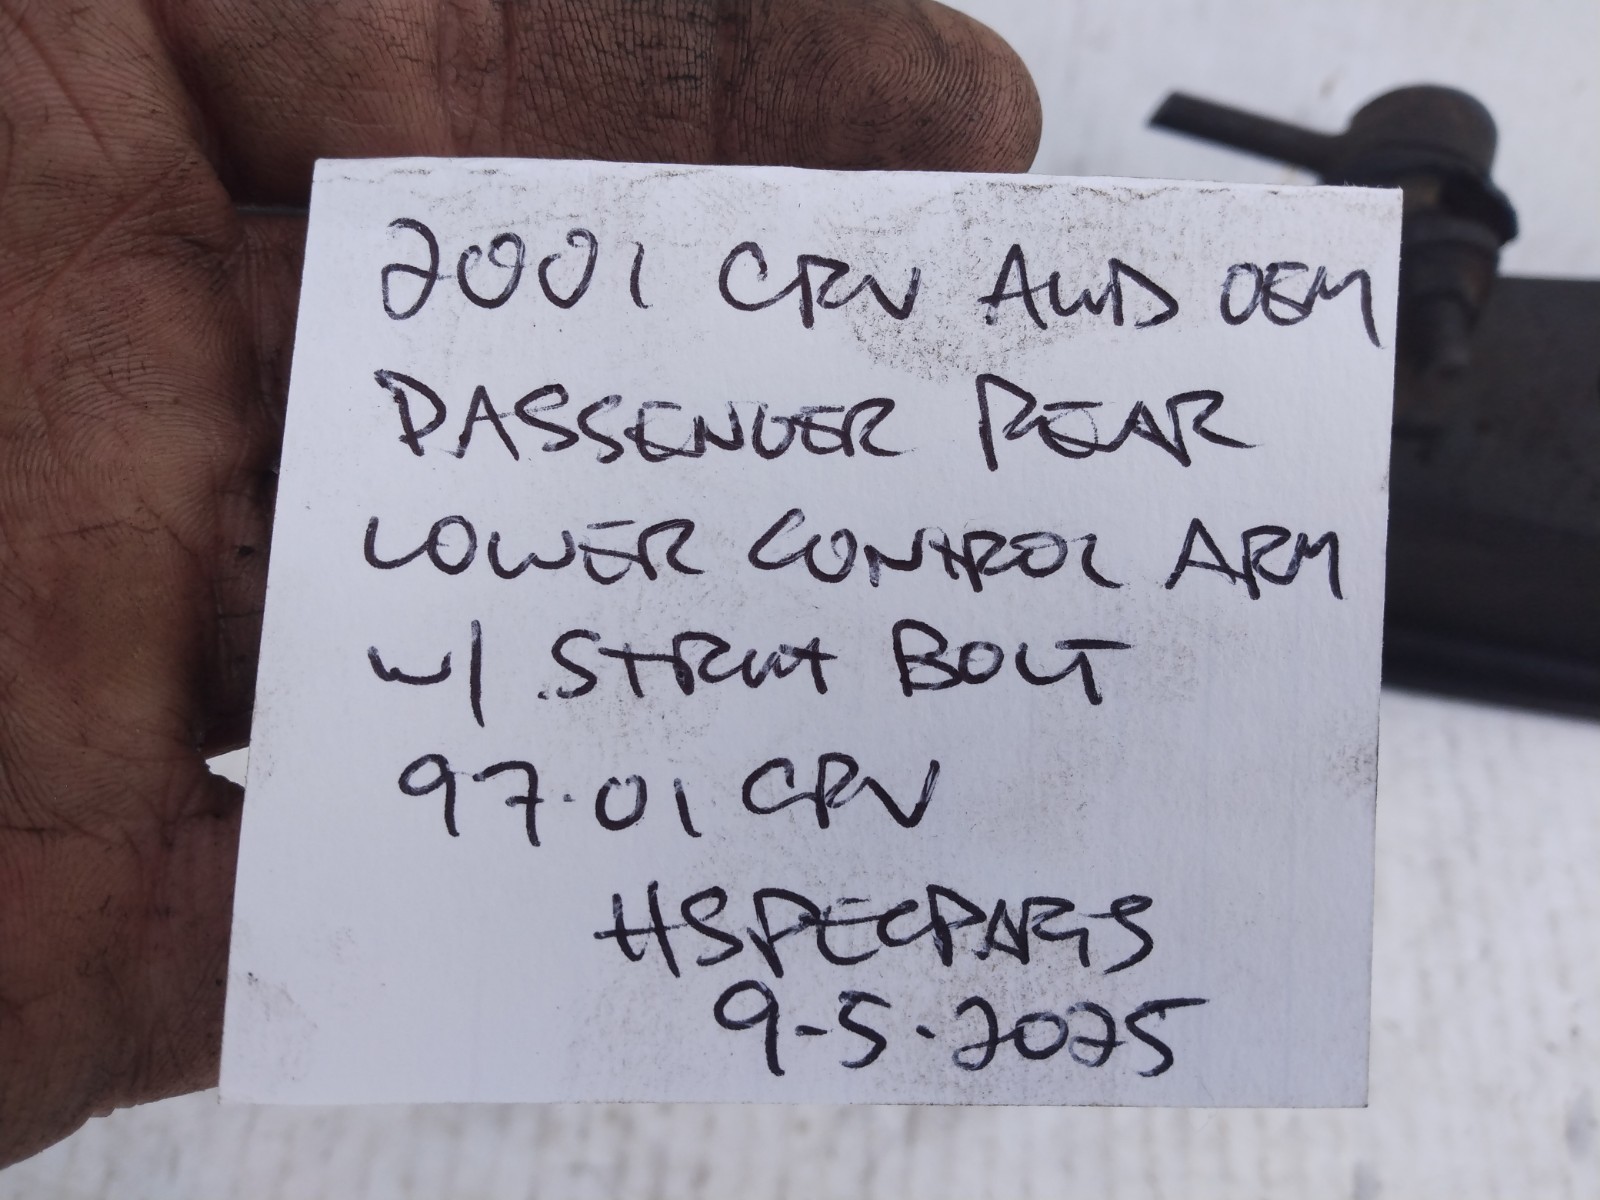 2001 CRV AWD OEM
PASSENGER REAR
LOWER CONTROL ARM
W/ STRUT BOLT
97-01 CRV
HSPECPARTS
9-5-2025